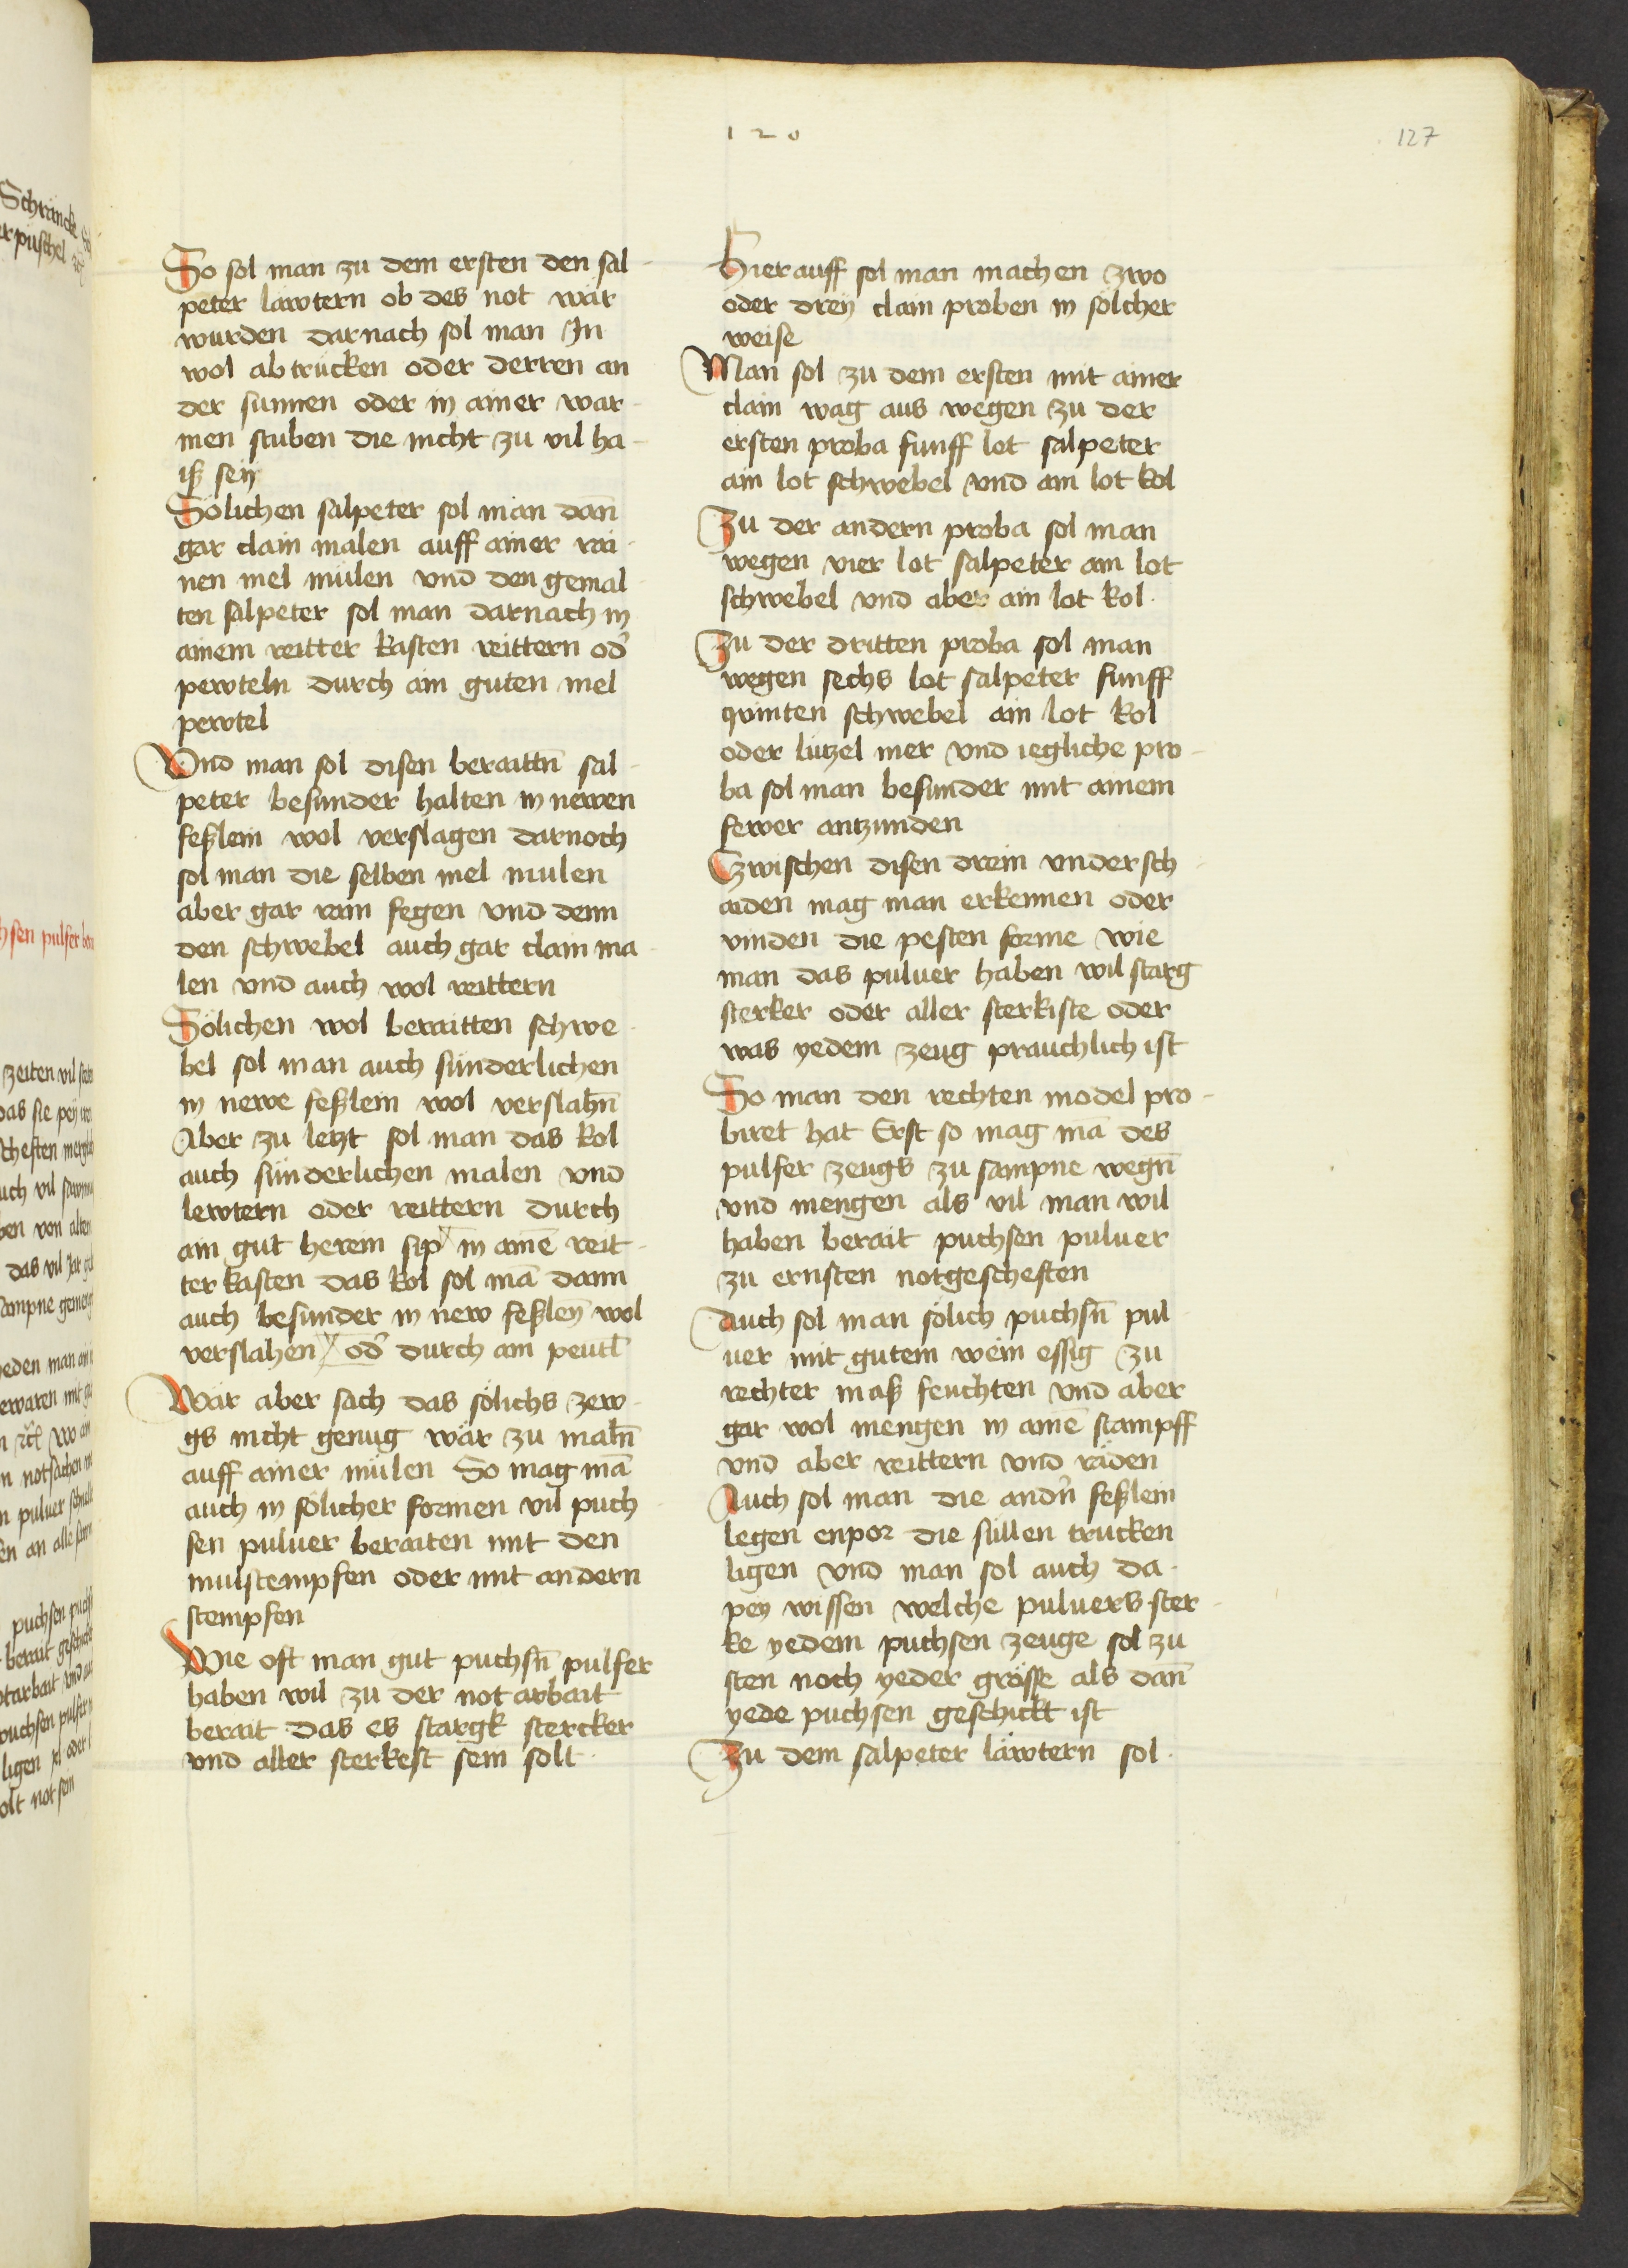 120
127
So sol man zu dem ersten den sal-
peter lawtern ob des not wär
wurden darnach sol man In
wol abtrücken oder derren an
der sunnen oder in ainer war-
men stuben die nicht zu vil ha-
iß sey
Sölichen salpeter sol man dan̄
gar clain malen auff ainer rai-
nen mel mülen vnd den gemal
ten salpeter sol man darnach in
ainem reitter kasten reittern od̄
pewteln durch ain guten mel
pewtel
Vnd man sol disen beraittn̄ sal-
peter besunder halten in newen
feßlein wol verslagen darnoch
sol man die selben mel mulen
aber gar rain fegen vnd denn
den schwebel auch gar clain ma-
len vnd auch wol reittern
Sölichen wol beraitten schwe-
bel sol man auch sünderlichen
in newe feßlein wol verslahn̄
Aber zu letzt sol man das kol
auch sünderlichen malen vnd
lewtern oder reittern durch
ain gut herein sip in aine̅ reit-
ter kasten das kol sol ma̅ dann
auch besunder in new feßlen̄ wol
verslahen od̄ durch ain peutl̄
Wär aber sach das sölichs zew-
gs nicht genug wär zu maln̄
auff ainer mülen So mag ma̅
auch in sölicher formen vil puch
sen puluer beraiten mit den
mulstempfen oder mit andern
stempfen
Wie oft man gut puchsn̄ pulfer
haben wil zu der not arbait
berait das es stargk stercker
vnd aller sterkest sein solt
Hierauff sol man machen zwo
oder dreÿ clain proben in sölcher
weise
Man sol zu dem ersten mit ainer
clain wag aus wegen zu der
ersten proba funff lot salpeter
ain lot schwebel vnd ain lot kol
Zu der andern proba sol man
wegen vier lot salpeter ain lot
schwebel vnd aber ain lot kol
Zu der dritten proba sol man
wegen sechs lot salpeter funff
quinten schwebel ain lot kol
oder lützel mer vnd iegliche pro-
ba sol man besunder mit ainem
fewer antzunden
Zwischen disen drein vndersch-
aiden mag man erkennen oder
vinden die pesten forme wie
man das puluer haben wil starg
sterker oder aller sterkiste oder
was yedem zeug prauchlich ist
So man den rechten model pro-
biret hat Erst so mag ma̅ des
pulfer zeugs zu sampne wegn̄
vnd mengen als vil man wil
haben berait puchsen puluer
zu ernsten notgescheften
Auch sol man sölich puchsn̄ pul
uer mit gutem wein essig zu
rechter maß feuchten vnd aber
gar wol mengen in aine̅ stampff
vnd aber reittern vnd räden
Auch sol man die andn̄ feßlein
legen enpor die süllen trucken
ligen vnd man sol auch da-
peÿ wissen welche puluers ster-
ke yedem puchsen zeuge sol zu
sten noch yeder grösse als dan̄
yede puchsen geschickt ist
Zu dem salpeter läwtern sol